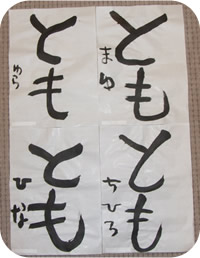 とも
まゆ
とも
ゆら
とも
ちひろ
とも
ひな